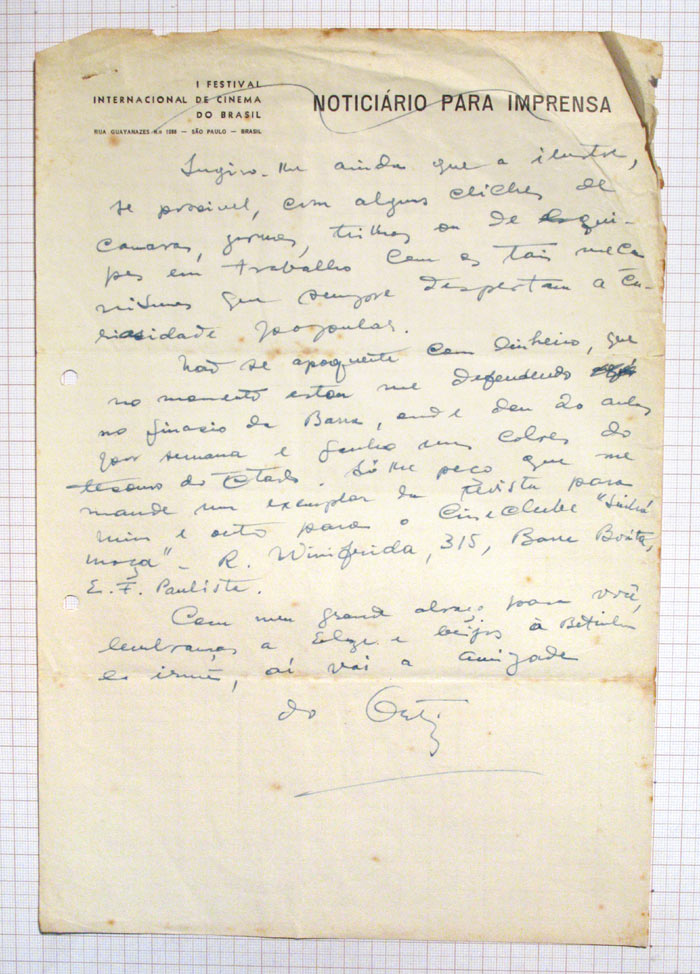 I FESTIVAL
INTERNACIONAL DE CINEMA
DO BRASIL
RUA GUAYANAZES N.o 1288 — SÃO PAULO — BRASIL
NOTICIÁRIO PARA IMPRENSA
Sugiro-lhe ainda que a ilustre,
se possivel, com alguns clichés de
camaras, gruas, trilhos ou de equi-
pes em trabalho com os tais meca
nismos que sempre despertam a cu-
riosidade popular.
Não se apoquente com dinheiro, que
no momento estou me defendendo
no ginasio da Barra, onde dou do aulas
por semana e ganho uns cobres do
tesouro do Estado. Só lhe peço que me
mande um exemplar da revista para
mim e outo para o Cineclube "Sinhá
moça" - R. Winifrida, 315, Barra Bonita,
E. F. Paulista.
Com meu grande abraço para você,
lembranças a e beijos à Betinha
e irmã, aí vai a amizade
do